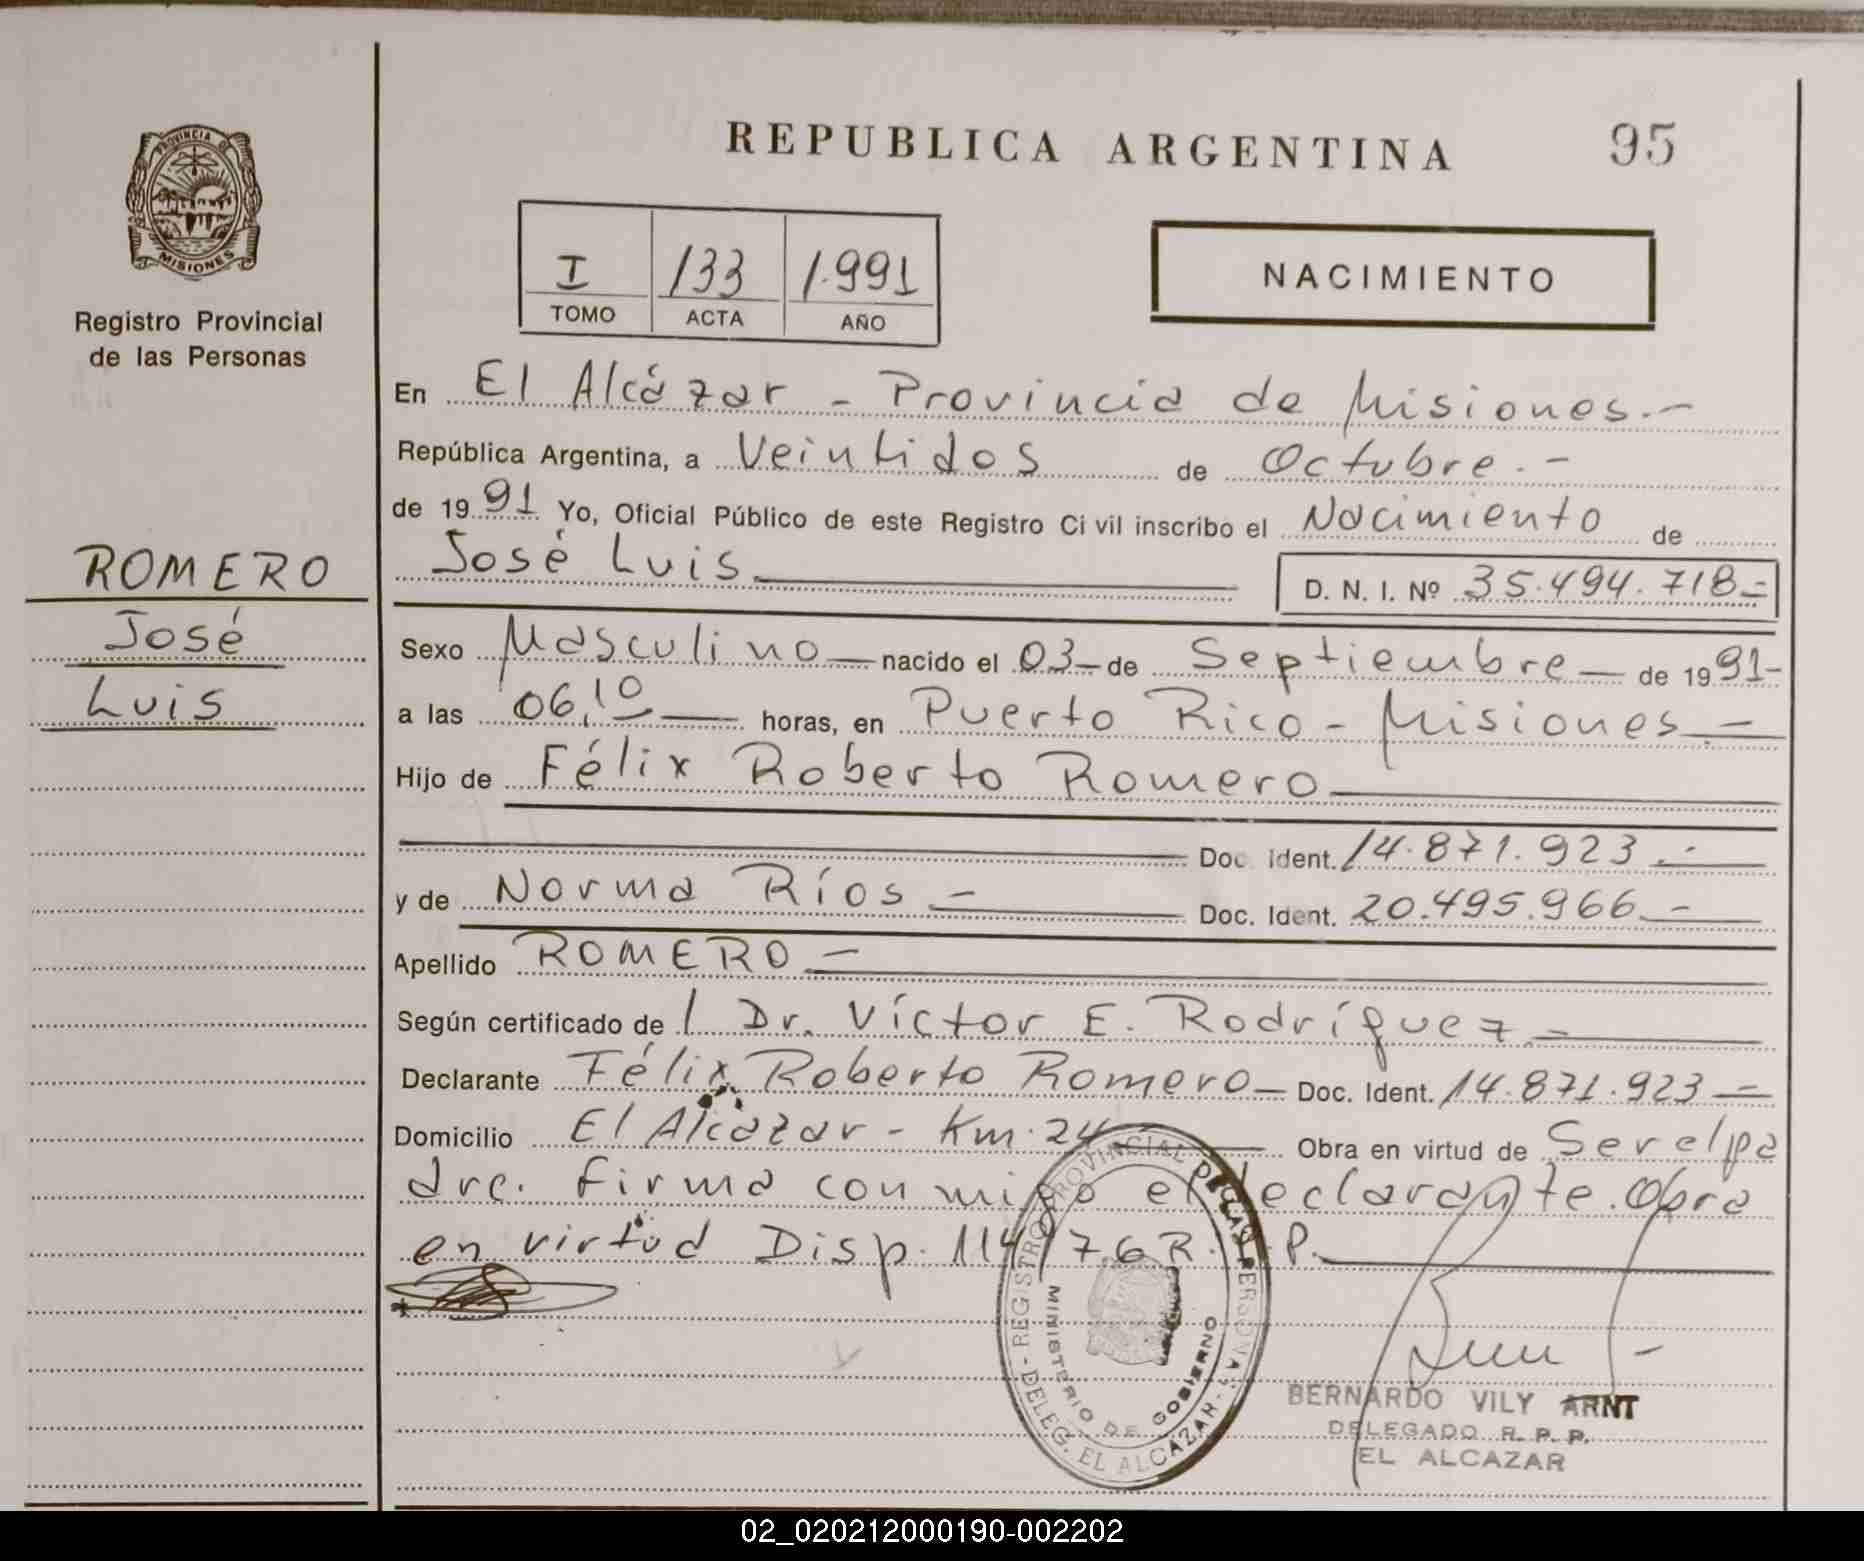 REPUBLICA ARGENTINA 95
PROVINCIA DE
MISIONES
Registro Provincial
de las Personas
I 133 1.991
TOMO ACTA AÑO
NACIMIENTO
ROMERO
José
Luis
En El Alcázar - Provincia de Misiones.-
República Argentina, a Veintidos de Octubre.-
de 1991 Yo, Oficial Público de este Registro Civil inscribo el Nacimiento de
José Luis D. N. I. Nº 35.494.718=
Sexo Masculino — nacido el 03 - de Septiembre — de 1991-
a las 06,10 — horas, en Puerto Rico - Misiones -
Hijo de Félix Roberto Romero
Doc. ident. 14.871.923.-
y de Norma Ríos - Doc. Ident. 20.495.966 -
Apellido ROMERO -
Según certificado de l Dr. Víctor E. Rodríguez -
Declarante Félix Roberto Romero - Doc. Ident. 14.871.923 =
Domicilio El Alcázar - Km. 24 Obra en virtud de Ser el pa
dre. firma conmigo el declarante. Obra
en virtud Disp. 114/76 R. P.
REGISTRO PROVINCIAL DE LAS PERSONAS - DELEG. EL ALCAZAR -
MINISTERIO DE GOBIERNO
BERNARDO VILY ARNT
DELEGADO R. P. P.
EL ALCAZAR
02_020212000190-002202